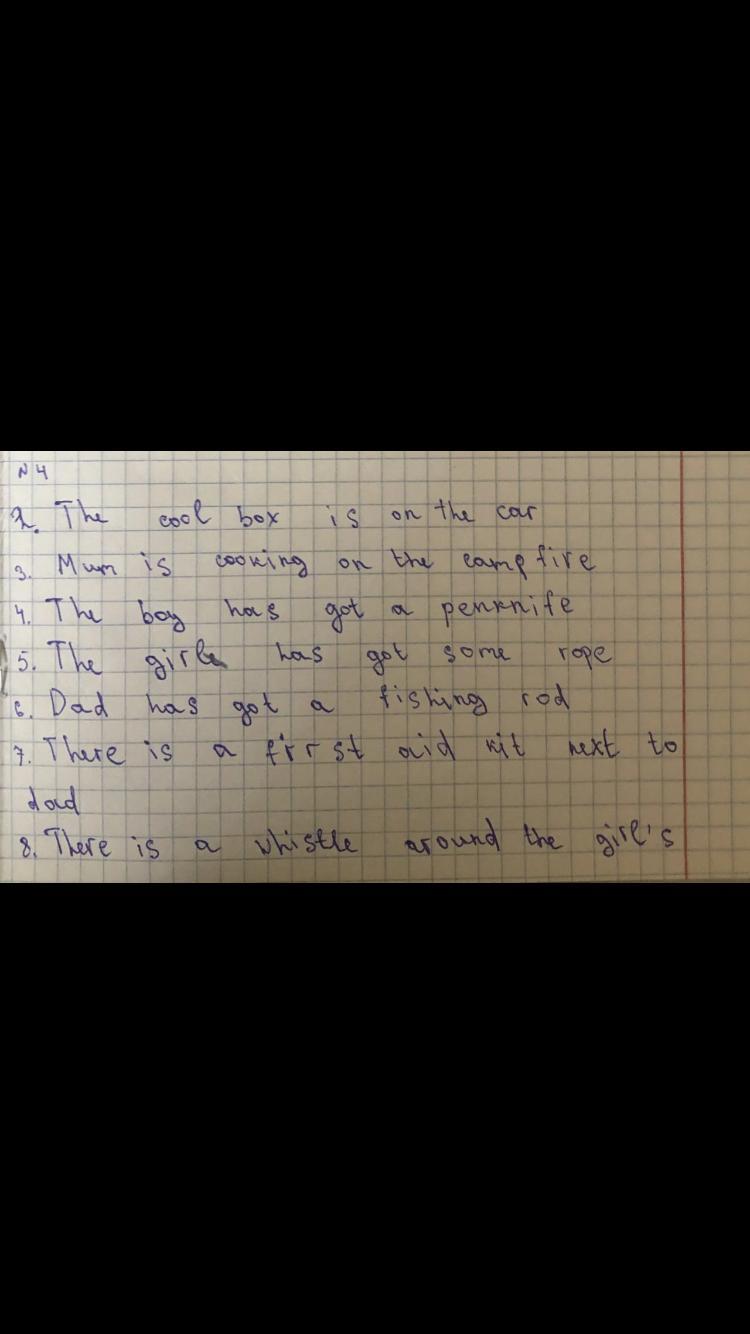 N 4
2. The cool box is on the car
3. Mum is cooking on the campfire
4. The boy has got a penknife
5. The girl has got some rope
6. Dad has got a fishing rod
7. There is a first aid kit next to
dad
8. There is a whistle around the girl's